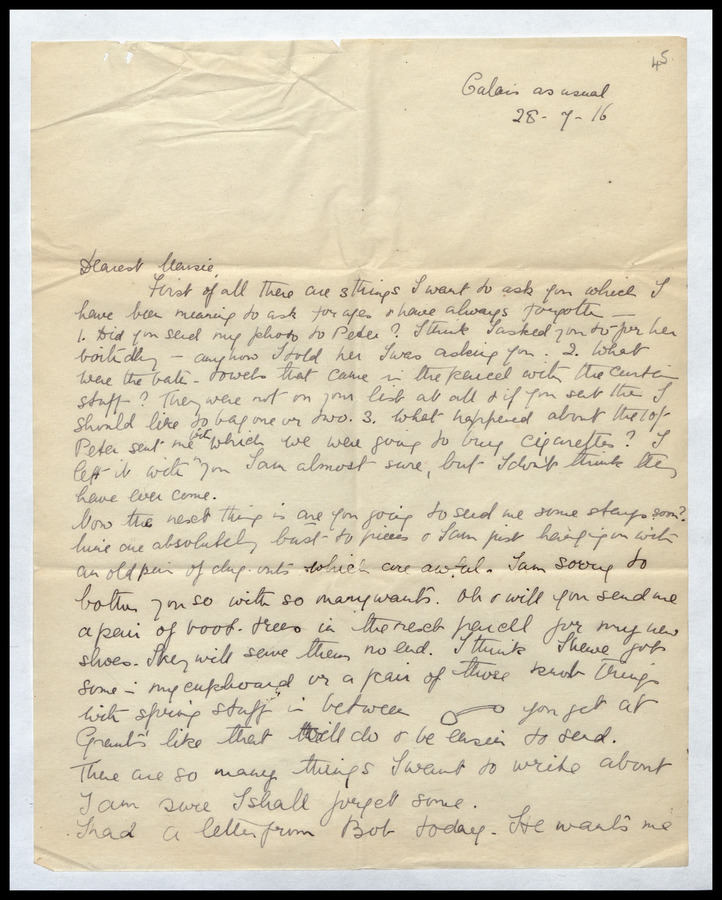 45.
Calais as usual
28-7-16
Dearest
First of all there are 3 things I want to ask you which I
have been meaning to ask for ages & have always forgotten —
1. Did you send my photo to Peter? I think I asked you to for her
birthday — anyhow I told her I was asking you. 2. What
were the bath-towels that came in the parcel with the curtain
stuff? They were not on your list at all & if you sent them I
should like to bag one or two. 3. What happened about the 10/-
Peter sent me with which we were going to buy cigarettes? I
left it with you I am almost sure, but I don't think they
have ever come.
Now the next thing is are you going to send me some stays soon?
Mine are absolutely bust to pieces & I am just hanging on with
an old pair of dug-outs which are awful. I am sorry to
bother you so with so many wants. Oh & will you send me
a pair of boot-trees in the next parcel for my new
shoes. They will save them no end. I think I have got
some in my cupboard or a pair of those knob things
with spring stuff in between you get at
Grant's like that will do & be easier to send.
There are so many things I want to write about
I am sure I shall forget some.
I had a letter from Bob today. He wants me